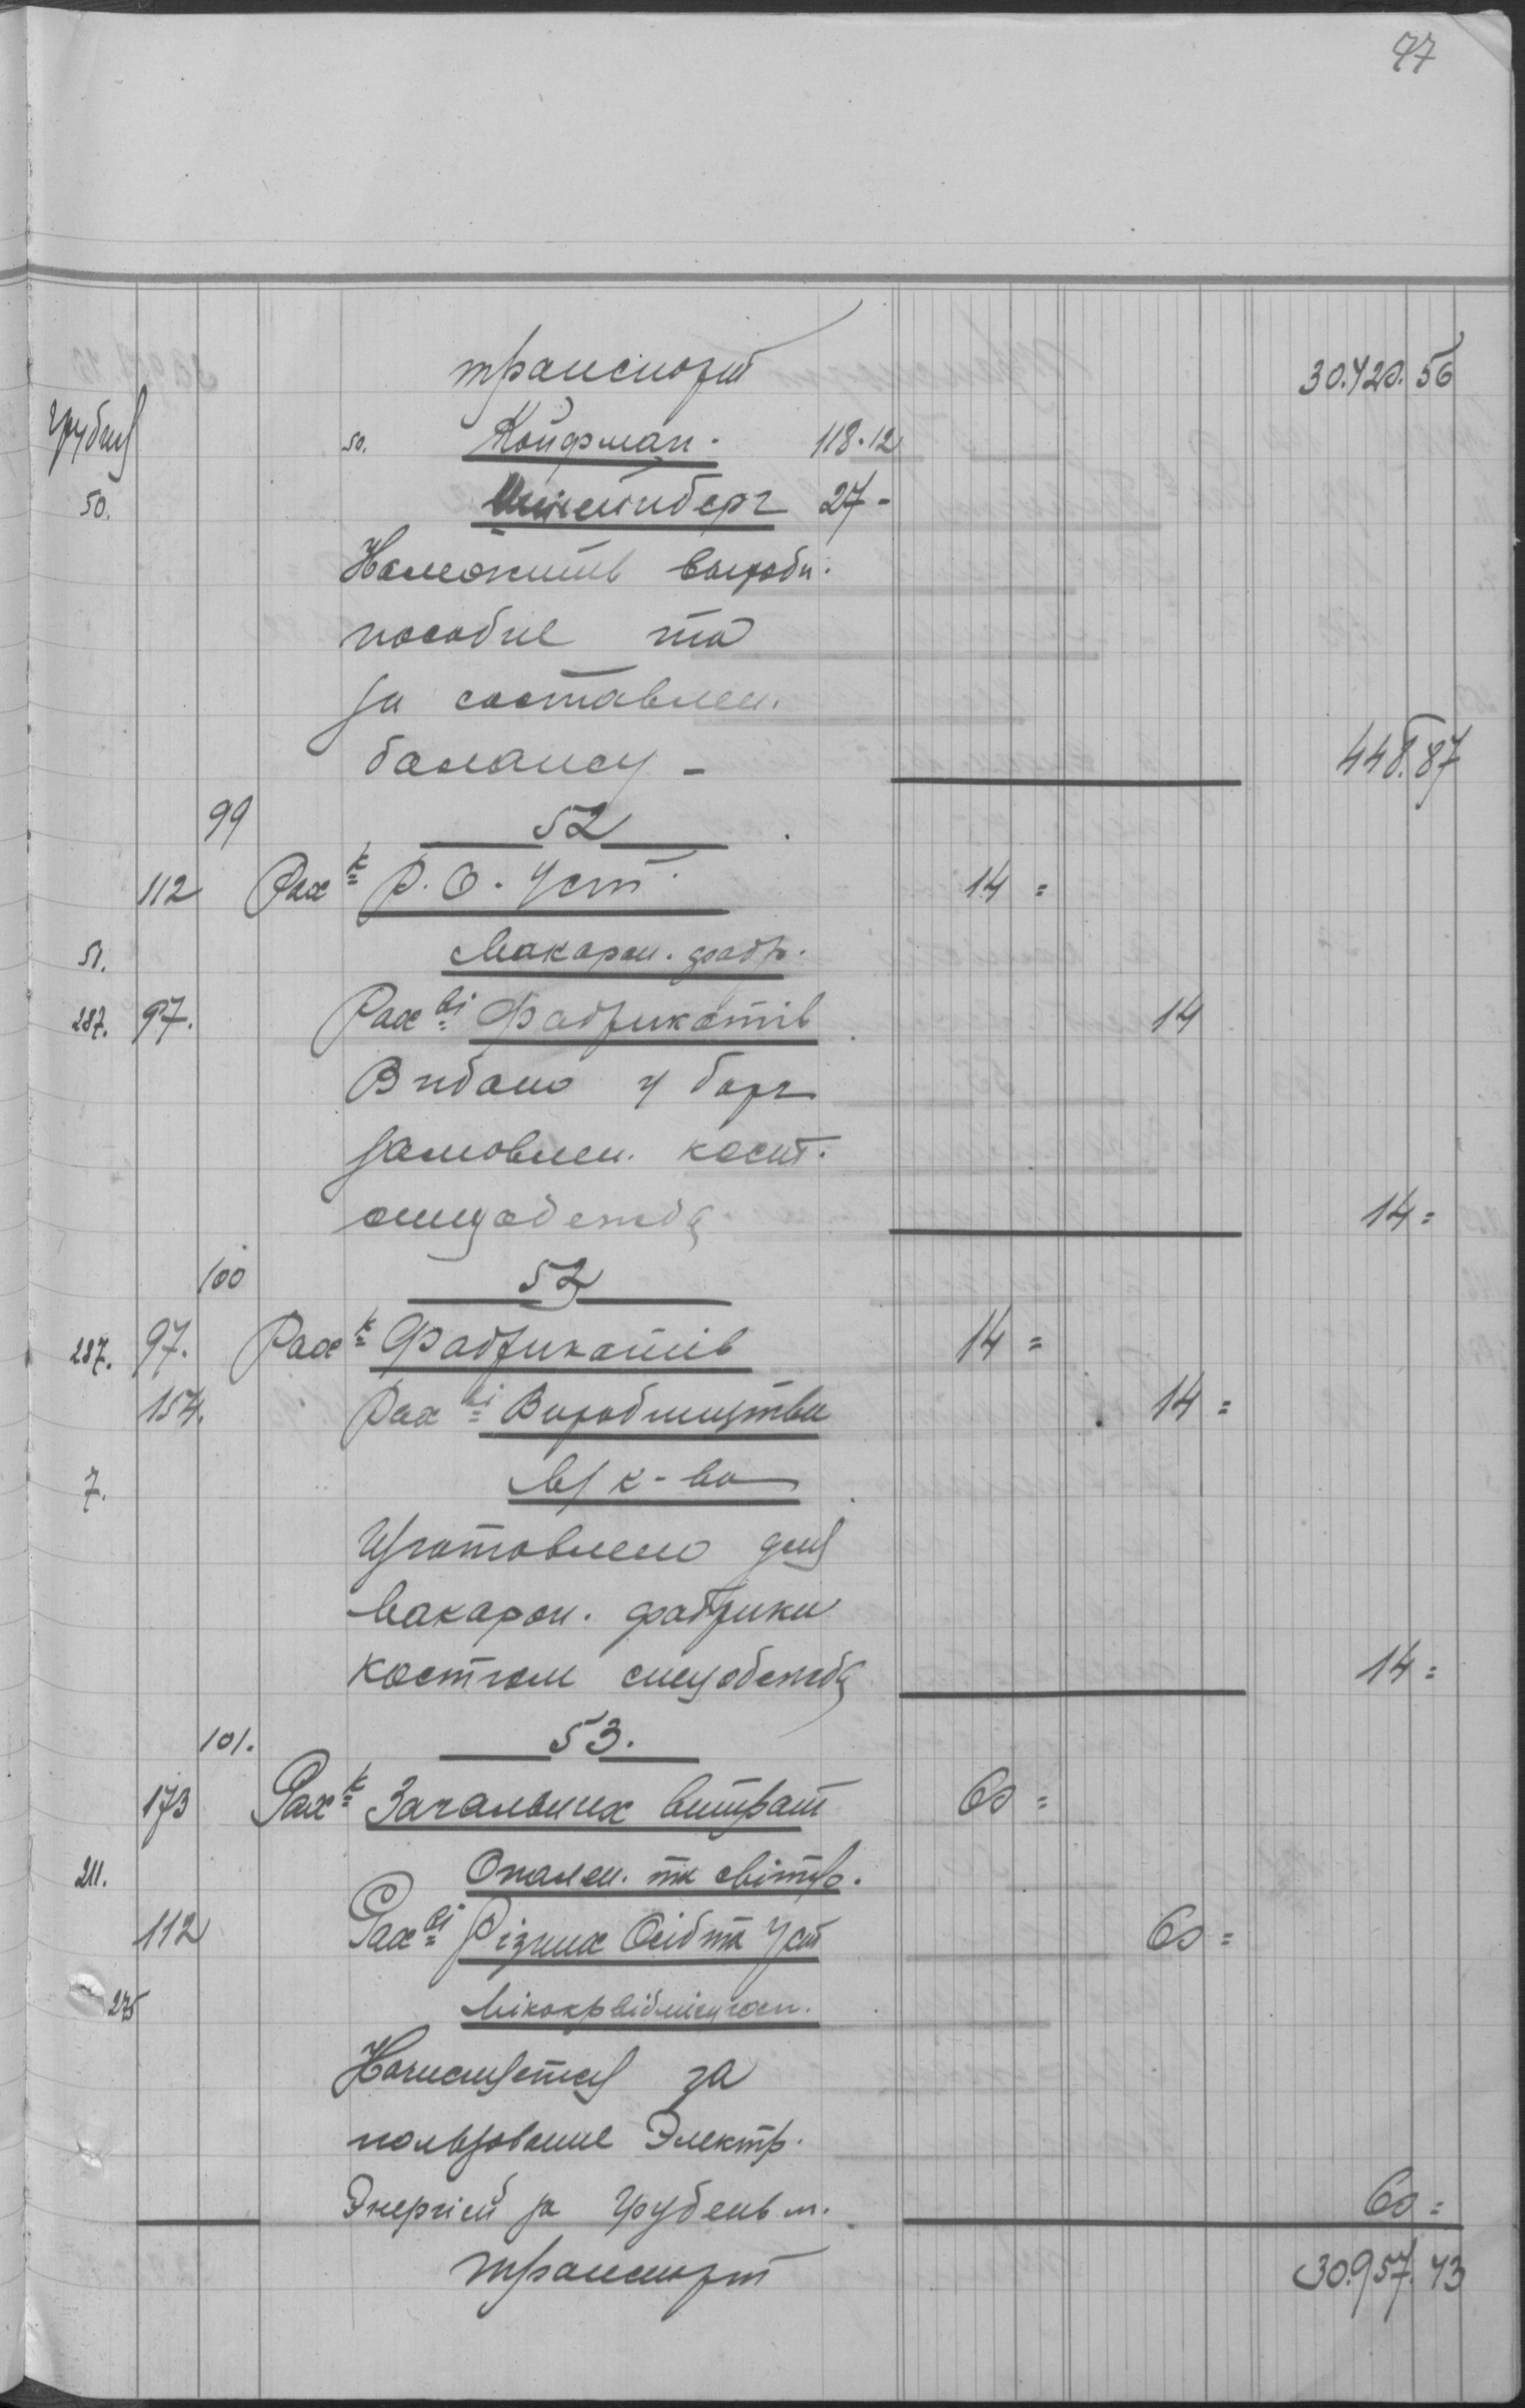 47
транспорт 30.420.56
грудня 50. Койфман. 118.12
50. 27-
Належить вироби.
пособие та
за составлен.
балансу - 448.87
99 52
112 Рах к Р. О. Уст. 14=
51. Макарон. фабр.
287. 97. Рах ві Фабрикатів 14
Видано у борг
замовлен. кост.
спецодежда 14=
100 52
287. 97. Рах к Фабрикатів 14=
154. Рах ві Виробництва 14=
7. М/к-ва
Изготовлено для
Макарон. фабрики
костюм спецодежда 14=
101. 53.
173 Рах к Загальних витрат 60=
211. Опален. та світло.
112 Рах ві Різних Осіб та Уст 60=
275
Начисляется за
пользование Электр.
Энергией за Грудень м. 60=
транспорт 30.957.43